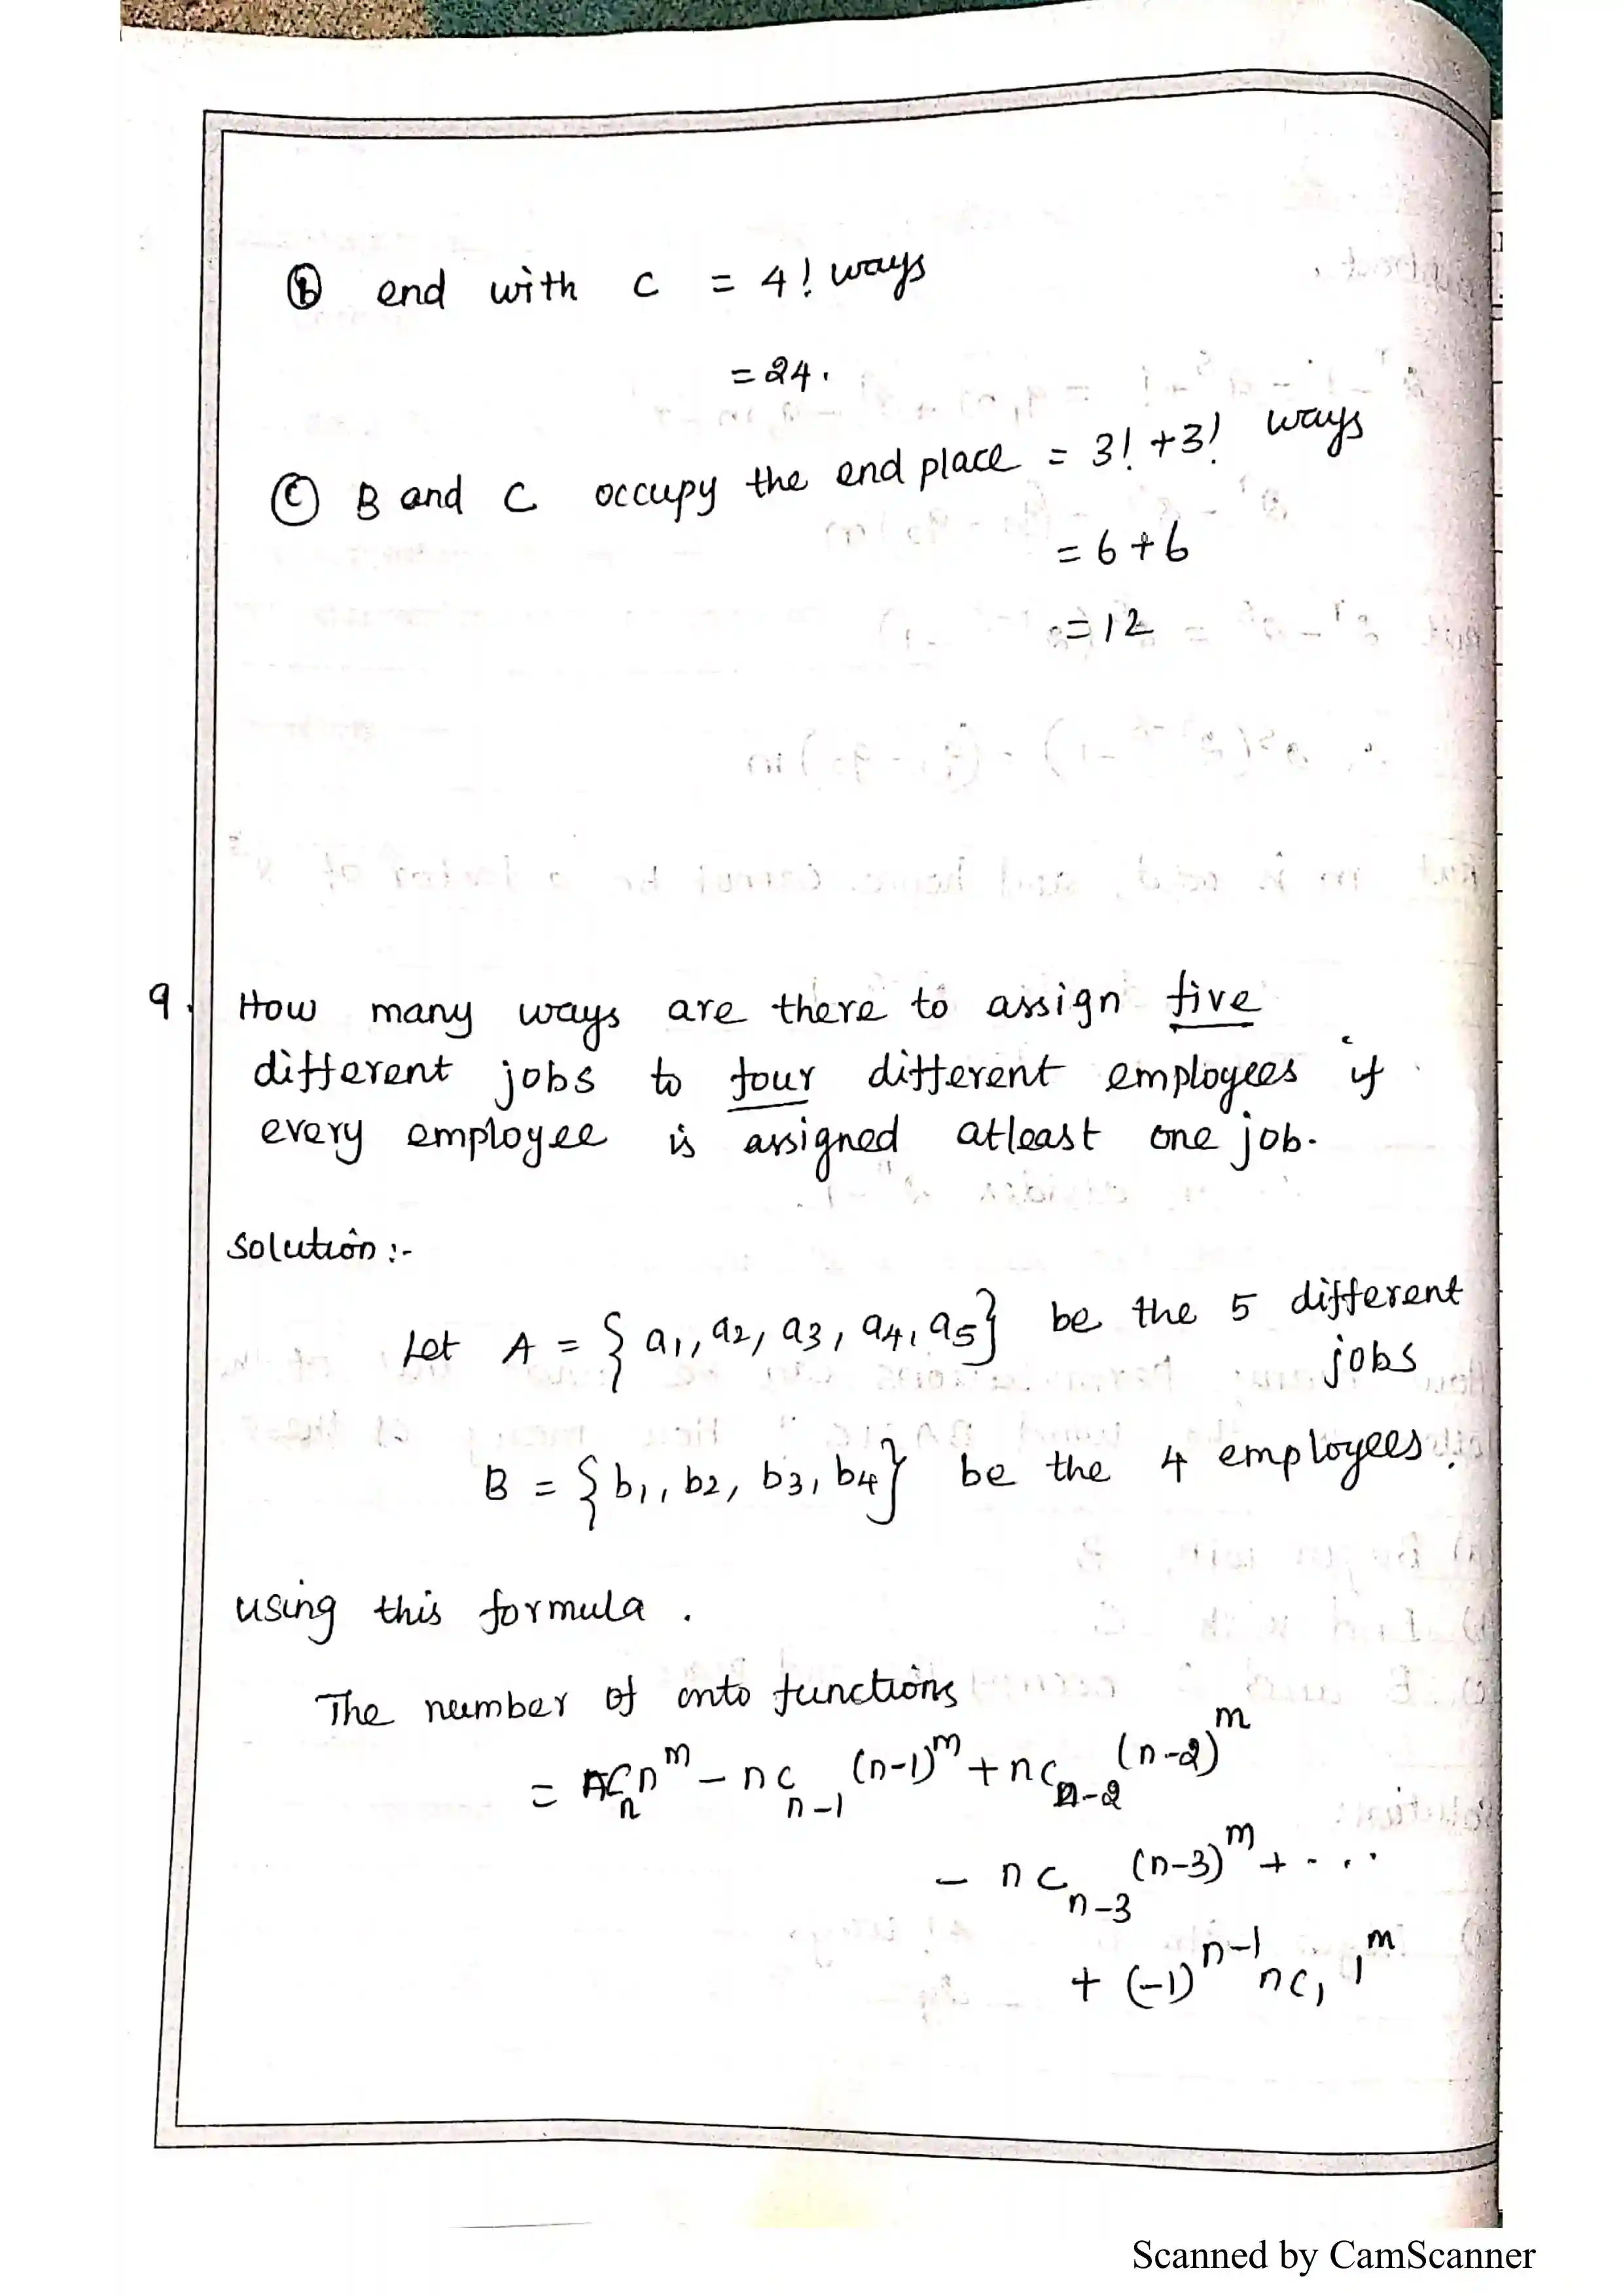 ⓑ end with C = 4! ways
= 24.
ⓒ B and C occupy the end place = 3! + 3! ways
= 6 + 6
= 12
9. How many ways are there to assign five
different jobs to four different employees if
every employee is assigned atleast one job.
Solution :-
Let A = {a1, a2, a3, a4, a5} be the 5 different
jobs
B = {b1, b2, b3, b4} be the 4 employees.
using this formula.
The number of onto functions
= nCn n^m - nC_{n-1} (n-1)^m + nC_{n-2} (n-2)^m
- nC_{n-3} (n-3)^m + ...
+ (-1)^{n-1} nC1 1^m
Scanned by CamScanner